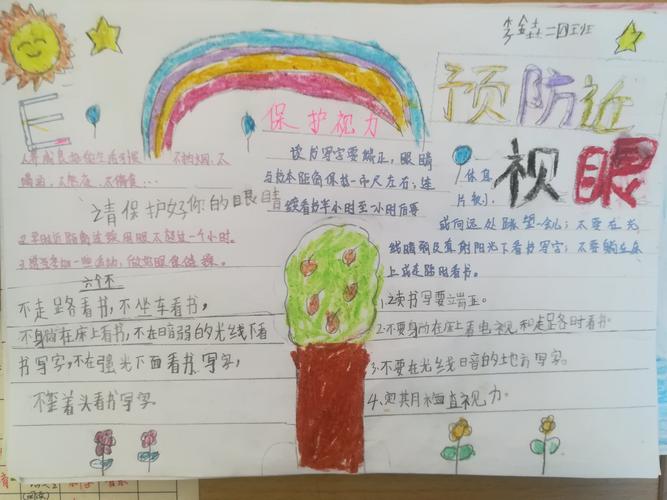 二四班
预防近
视眼
E
保护视力
读书写字要端正，眼睛
与书本距离保持一市尺左右；连
续看书半小时至一小时后要
休息
片刻，
或向远处眺望一会儿；不要在光
线暗弱及直射阳光下看书写字；不要躺在床
上或走路时看书。
1.养成良好的生活习惯 不吸烟、不
喝酒、不熬夜、不偏食…
请保护好你的眼睛
2.平时近距离连续用眼不超过一个小时。
六个不
不走路看书，不坐车看书，
不躺在床上看书，不在暗弱的光线下看
书写字，不在强光下面看书写字，
不歪着头看书写字。
1.读书写要立端正。
2.不要躺在床上看电视和走路时看书。
3.不要在光线日音的地方写字。
4.定其月检查视力。